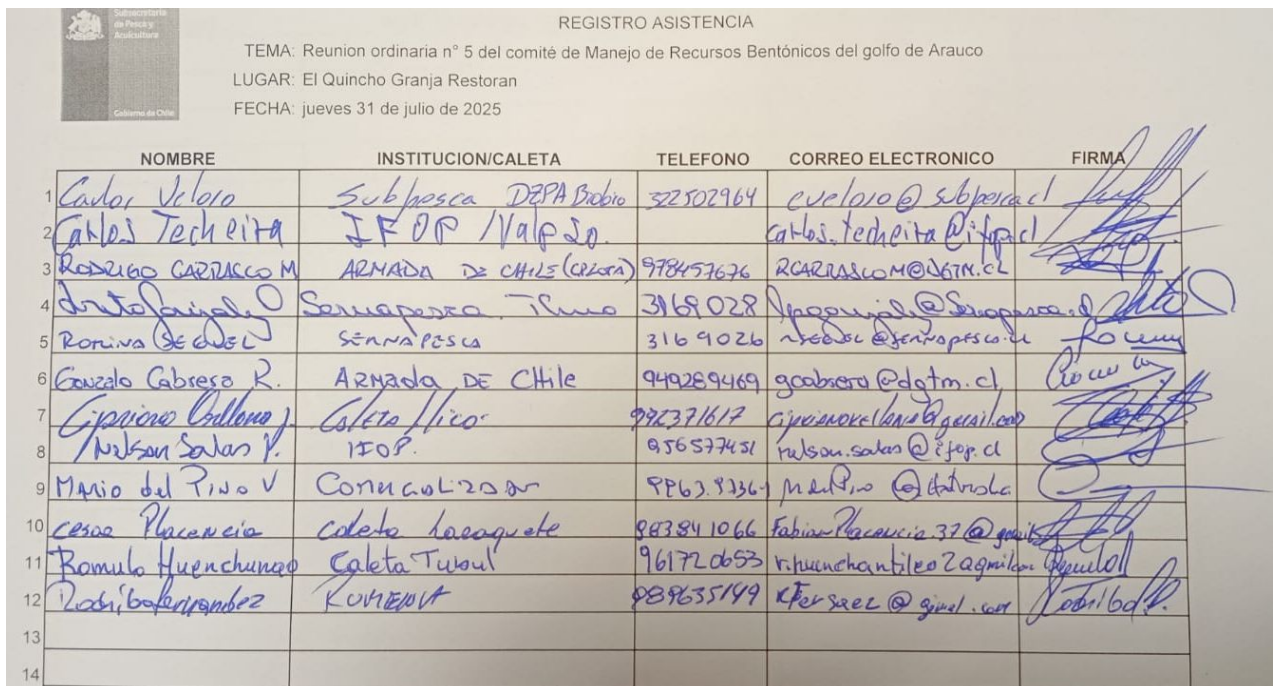 Subsecretaría
de Pesca y
Acuicultura
Gobierno de Chile
REGISTRO ASISTENCIA
TEMA: Reunion ordinaria n° 5 del comité de Manejo de Recursos Bentónicos del golfo de Arauco
LUGAR: El Quincho Granja Restoran
FECHA: jueves 31 de julio de 2025
NOMBRE INSTITUCION/CALETA TELEFONO CORREO ELECTRONICO FIRMA
1 Carlos Veloso Subpesca DZPA Biobio 322502964 cveloso@subpesca.cl
2 Carlos Techeira IFOP /Valpso. carlos.techeira@ifop.cl
3 RODRIGO CARRASCO M ARMADA DE CHILE 978457676 RCARRASCOM@DGTM.CL
4 Sernapesca 3169028
5 Romina SEGUEL SERNAPESCA 3169026 rseguel@sernapesca.cl
6 Gonzalo Cabrera R. ARMAda DE CHile 949289469 gcabrera@dgtm.cl
7 Cipriano Orellana Caleta Llico 992371617
8 Nelson Salas P. IFOP. 956577451 nelson.salas@ifop.cl
9 MArio del Pino V
10 cesar Placencia caleta Laraquete 983841066
11 Romulo Huenchunao Caleta Tubul 961720653
12 RUMENA 989635149
13
14